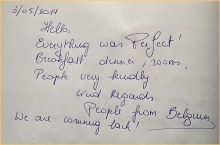 3/05/2017
Hello,
Everything was Perfect!
Breakfast, dinner, rooms,
People very kindly.
Kind Regards
People from Belgium
We are comming back!